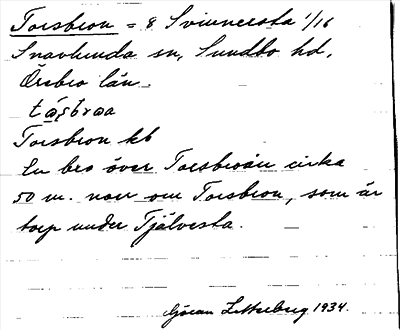 Torsbron = 8 Svinnersta 1/16
Snavlunda sn, Sundbo hd,
Örebro län.
Torsbron kb
En bro över Torsbroån cirka
50 m. norr om Torsbron, som är
torp under Tjälvesta.
Göran 1934.